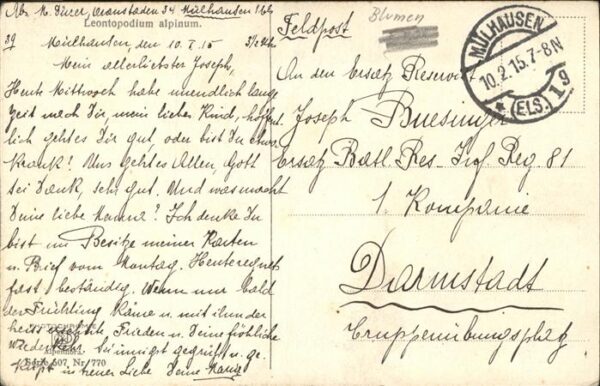 Abs. M. Oranstaden 34 Mülhausen i/Els
Leontopodium alpinum.
39
Mülhausen, den 10. II. 15 3½ Uhr
Mein allerliebster Joseph,
Heute Mittwoch habe unendlich lange
Zeit nach Dir, mein liebes Kind, hoffent
lich gehts Dir gut, oder bist Du etwa
krank? Uns gehts Allen, Gott
sei Dank, sehr gut. Und was macht
Deine liebe Mama? Ich denke Du
bist im Besitze meiner Karten
u. Brief vom Montag. Heute regnet
fast beständig. Wenn nur bald
der Frühling käme u. mit ihm der
heiss ersehnte Frieden u. Deine fröhliche
Wiederkehr. Sei innigst gegrüßt u. ge-
küßt in treuer Liebe Deine
Serie 507. Nr. 770
Feldpost
Blumen
MÜLHAUSEN
10.2.15.7-8N
* (ELS.) 19
An den Ersatz Reservist
Joseph Buesinger
Ersatz Batl. Res. Inf. Reg. 81
1. Kompanie
Darmstadt
Truppenübungsplatz